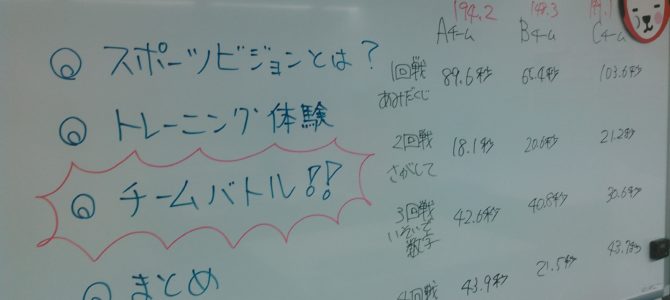 スポーツビジョンとは?
トレーニング体験
チームバトル!!
まとめ
194.2 148.3
Aチーム Bチーム Cチーム
1回戦 89.6秒 103.6秒
あみだくじ
2回戦 18.1秒 20.6秒 21.2秒
さがして
3回戦 42.6秒 40.8秒 30.6秒
数字
4回戦 43.9秒 21.5秒